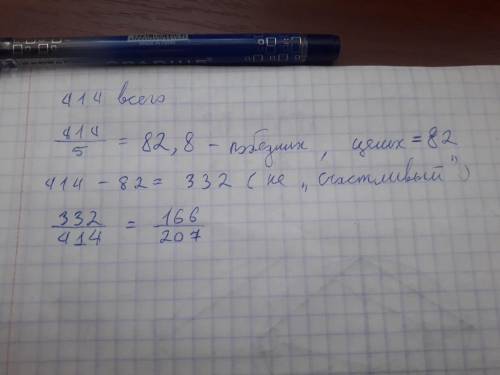 414 всего
414/5 = 82,8 - побезних, целих = 82
414 - 82 = 332 (не „счастливый")
332/414 = 166/207